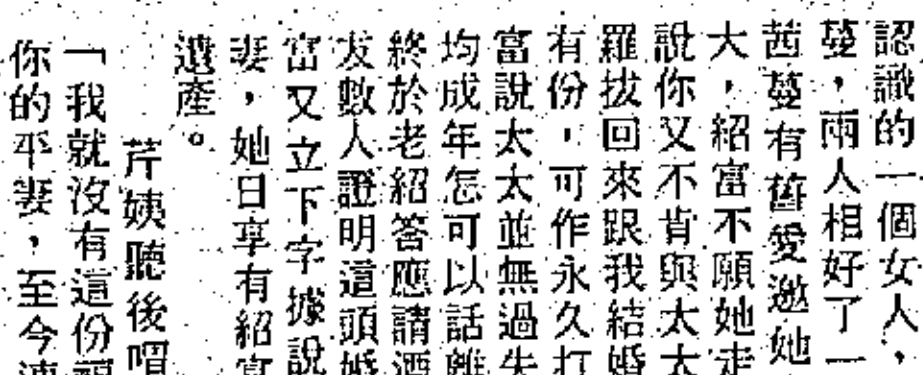 認識的一個女人，
蔓，兩人相好了一
茜蔓有舊愛邀她
大，紹富不願她走
說你又不肯與太太
羅拔回來跟我結婚
有份，可作永久打
富說太太並無過失
均成年怎可以話離
終於老紹答應請酒
友數人證明這頭婚
富又立下字據說
妻，她日享有紹富
遺產。
芹姨聽後喟
「我就沒有這份福
你的平妻，至今連